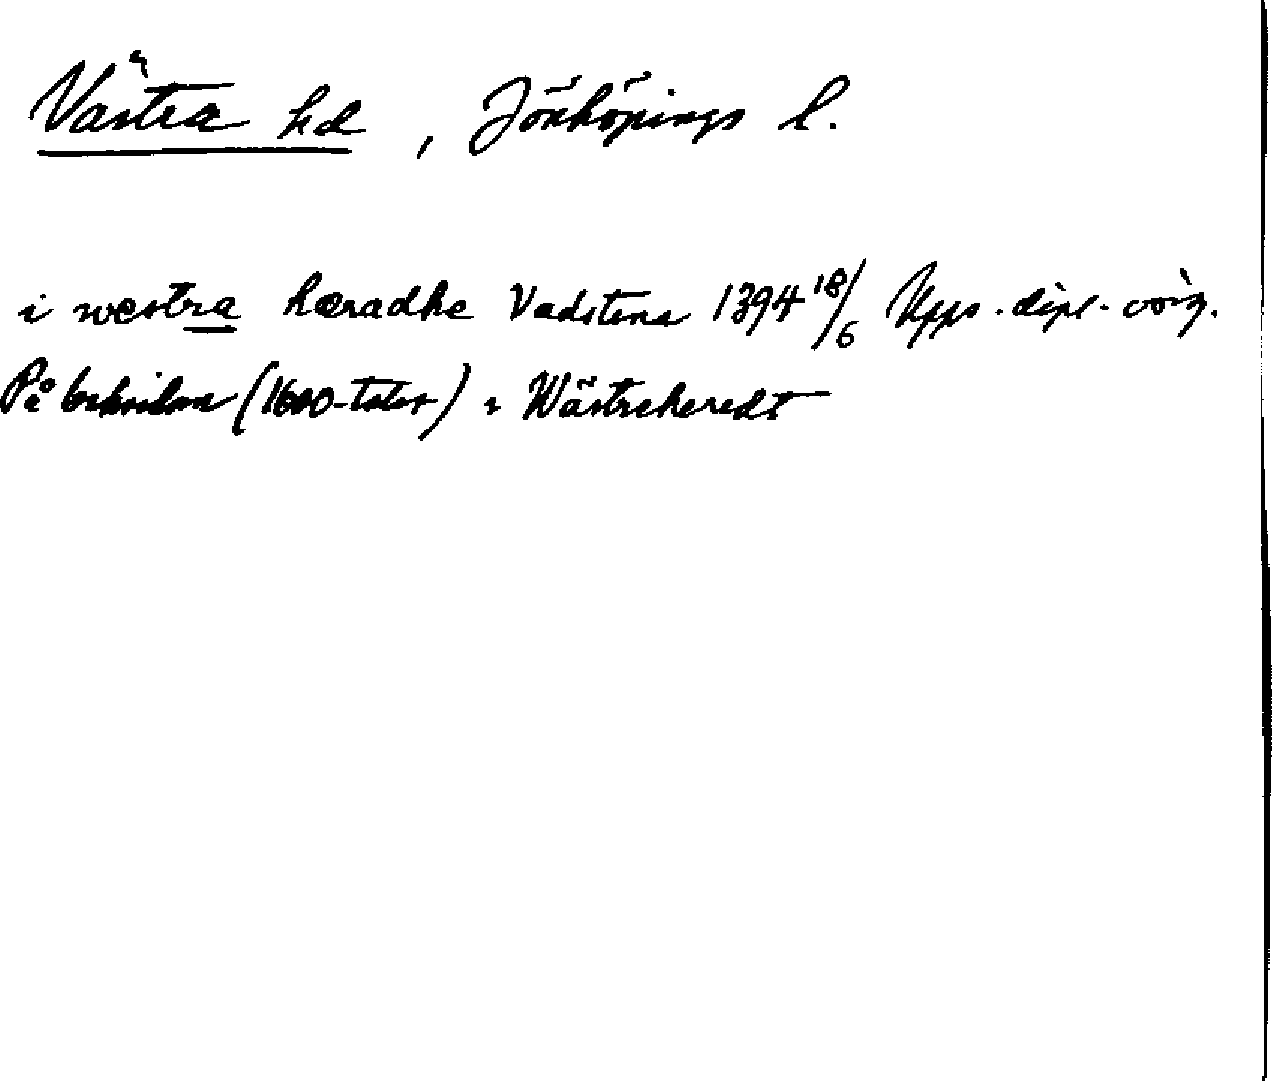 Västra hd, Jönköpings l.
i wæstra hæradhe Vadstena 1394 18/6 Upps. dipl. orig.
På baksidan (1600-talet) : Wästreheredt